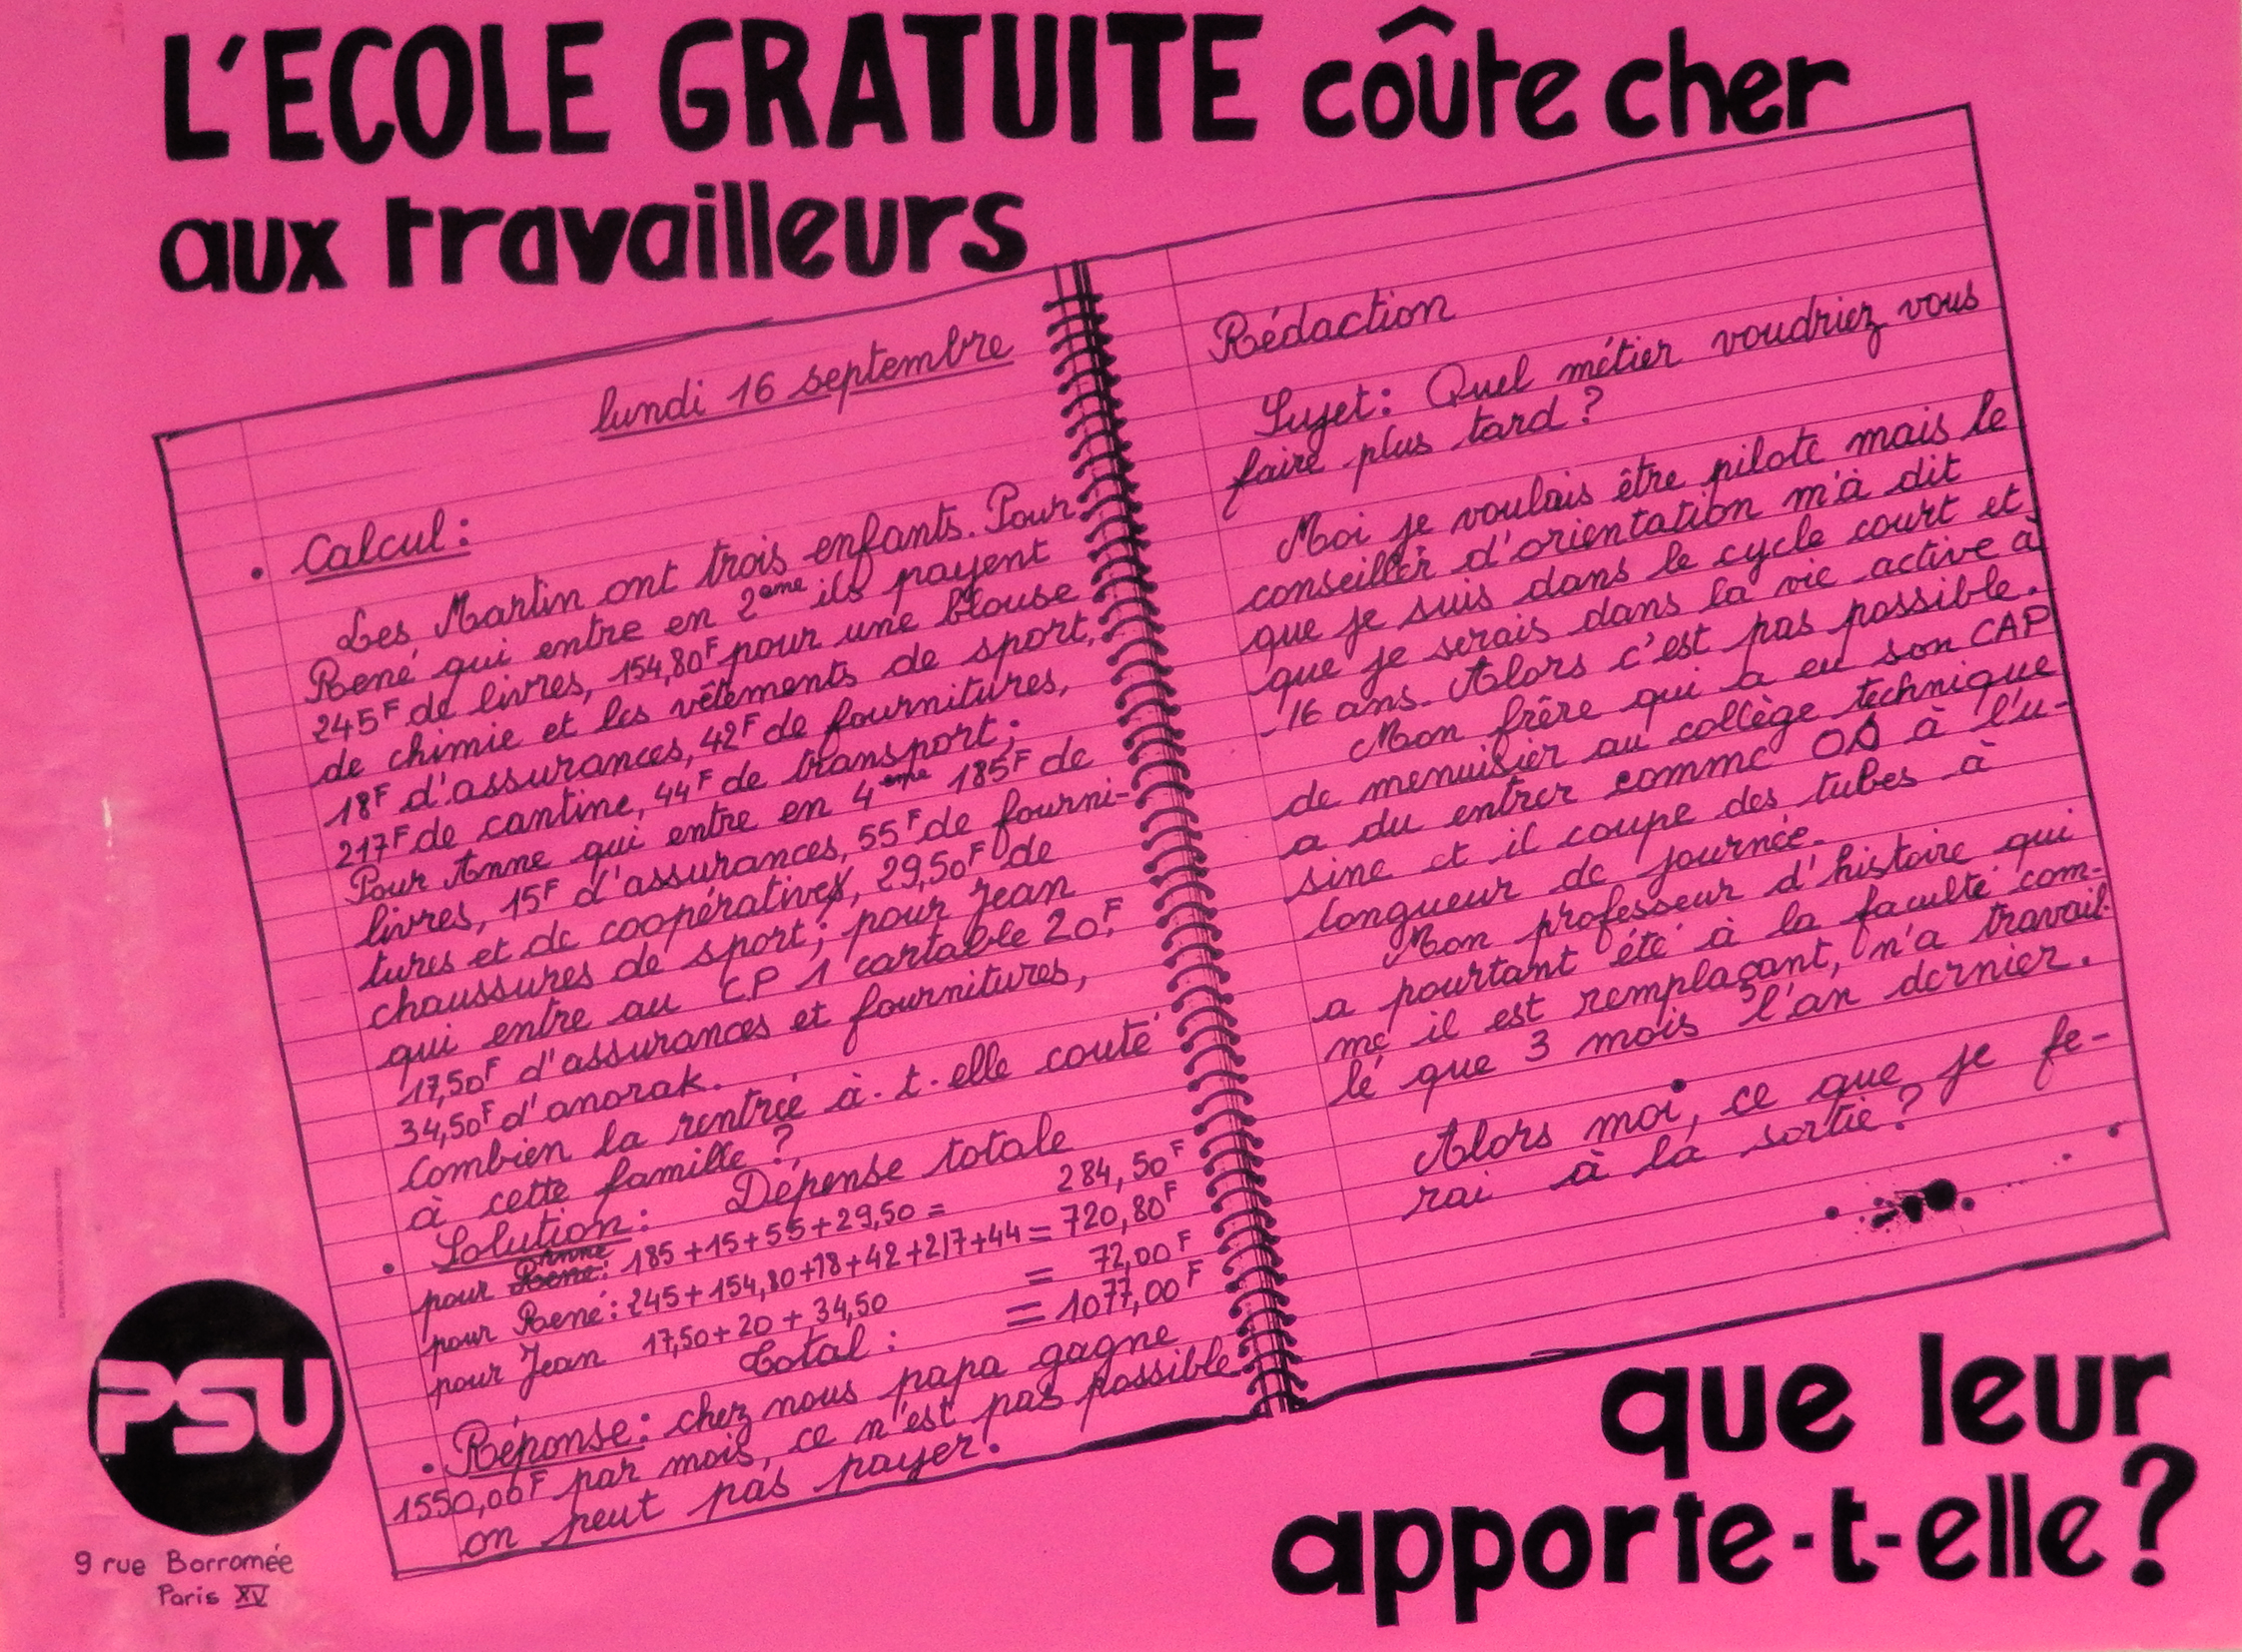 L'ECOLE GRATUITE coûte cher
aux travailleurs
lundi 16 septembre
Calcul:
Les Martin ont trois enfants. Pour
René qui entre en 2ème ils payent
245F de livres, 154,80F pour une blouse
de chimie et les vêtements de sport,
18F d'assurances, 42F de fournitures,
217F de cantine, 44F de transport;
Pour Anne qui entre en 4ème 185F de
livres, 15F d'assurances, 55F de fourni-
tures et de coopérative, 29,50F de
chaussures de sport; pour Jean
qui entre au CP 1 cartable 20F,
17,50F d'assurances et fournitures,
34,50F d'anorak.
Combien la rentrée à-t-elle couté
à cette famille?
Solution: Dépense totale
pour René Anne: 185+15+55+29,50= 284,50F
pour René: 245+154,80+18+42+217+44= 720,80F
pour Jean 17,50+20+34,50 = 72,00F
Total: = 1077,00F
Réponse: chez nous papa gagne
1550,00F par mois, ce n'est pas possible
on peut pas payer.
Rédaction
Sujet: Quel métier voudriez vous
faire plus tard?
Moi je voulais être pilote mais le
conseiller d'orientation m'à dit
que je suis dans le cycle court et
que je serais dans la vie active à
16 ans. Alors c'est pas possible.
Mon frère qui a eu son CAP
de menuisier au collège technique
a du entrer comme OS à l'u-
sine et il coupe des tubes à
longueur de journée.
Mon professeur d'histoire qui
a pourtant été à la faculté com-
me il est remplaçant, n'a travail-
lé que 3 mois l'an dernier.
Alors moi, ce que je fe-
rai à la sortie?
PSU
9 rue Borromée
Paris XV
que leur
apporte-t-elle?